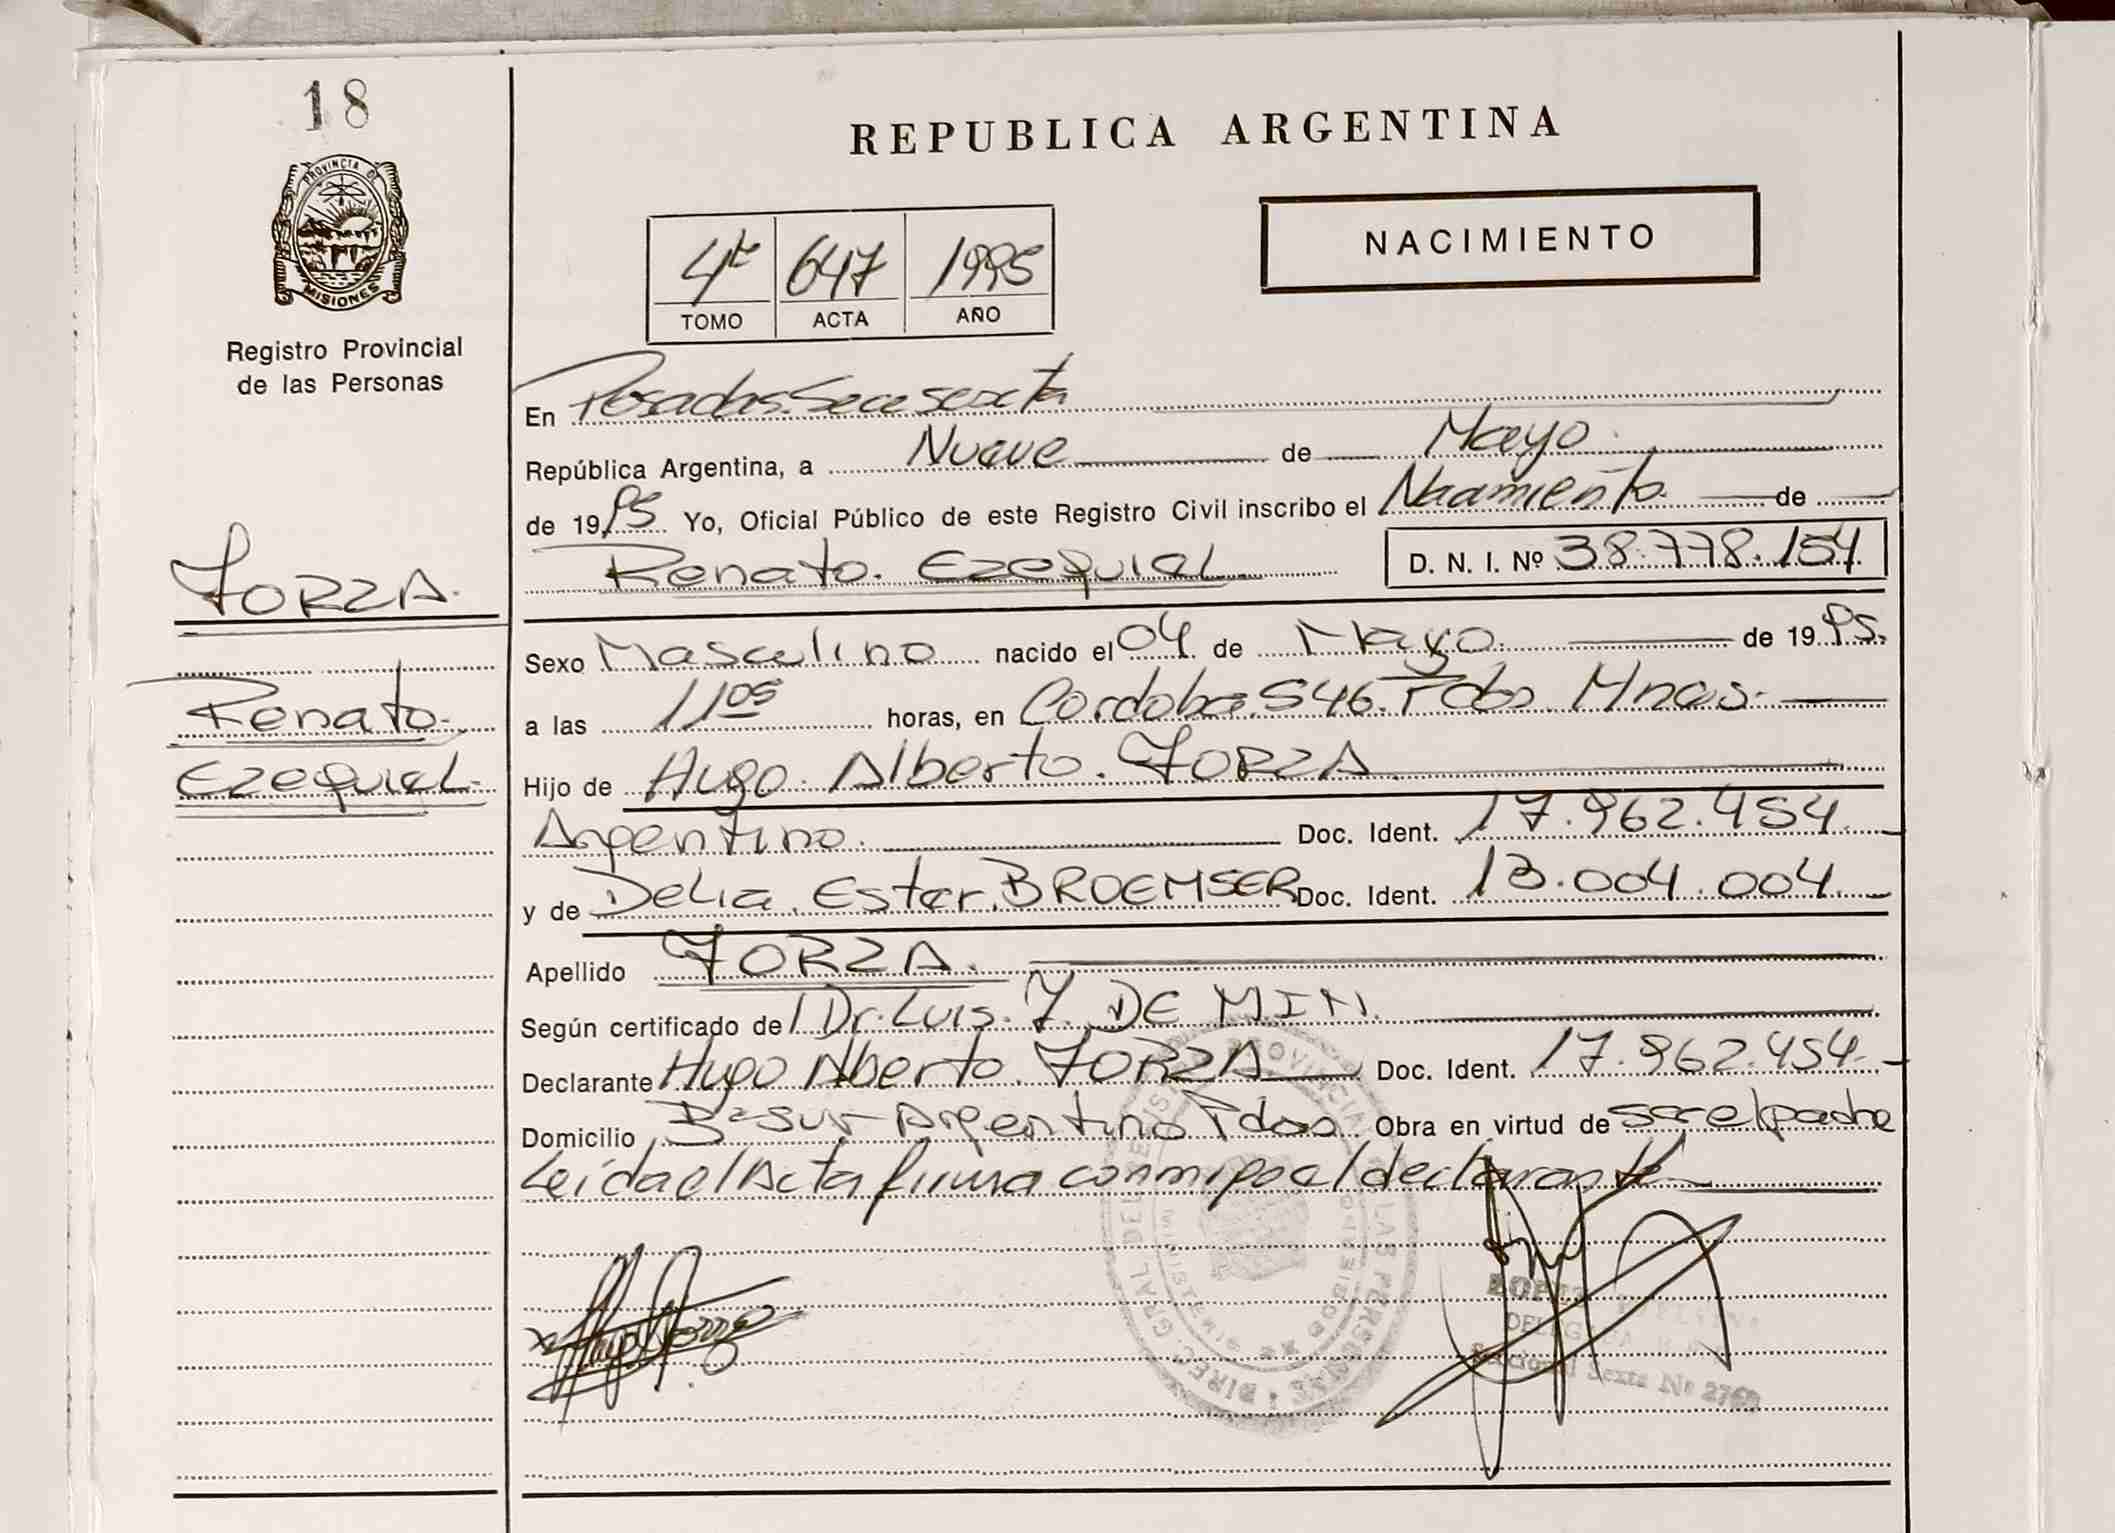 18
PROVINCIA DE
MISIONES
Registro Provincial
de las Personas
FORZA.
Renato.
Ezequiel.
REPUBLICA ARGENTINA
NACIMIENTO
4º 647 1995
TOMO ACTA AÑO
En Posadas. Secc sexta
República Argentina, a Nueve de Mayo.
de 1995 Yo, Oficial Público de este Registro Civil inscribo el Nacimiento. de
Renato. Ezequiel. D. N. I. Nº 38.778.154
Sexo Masculino nacido el 04 de Mayo. de 1995.
a las 11 05 horas, en Cordoba. 546. Pdas. Mnes.
Hijo de Hugo. Alberto. FORZA
Argentino. Doc. Ident. 17.962.454.
y de Delia. Ester. BROEMSER Doc. Ident. 13.004.004.
Apellido FORZA.
Según certificado de Dr. Luis. F. DE MIN.
Declarante Hugo Alberto. FORZA Doc. Ident. 17.962.454.
Domicilio Bº Sur Argentino Pdas. Obra en virtud de ser el padre
Leida el Acta firma conmigo el declarante
DIREC. GRAL. DEL PROVINCIAL LAS PERSONAS
LOPEZ
Seccional Sexta Nº 2768